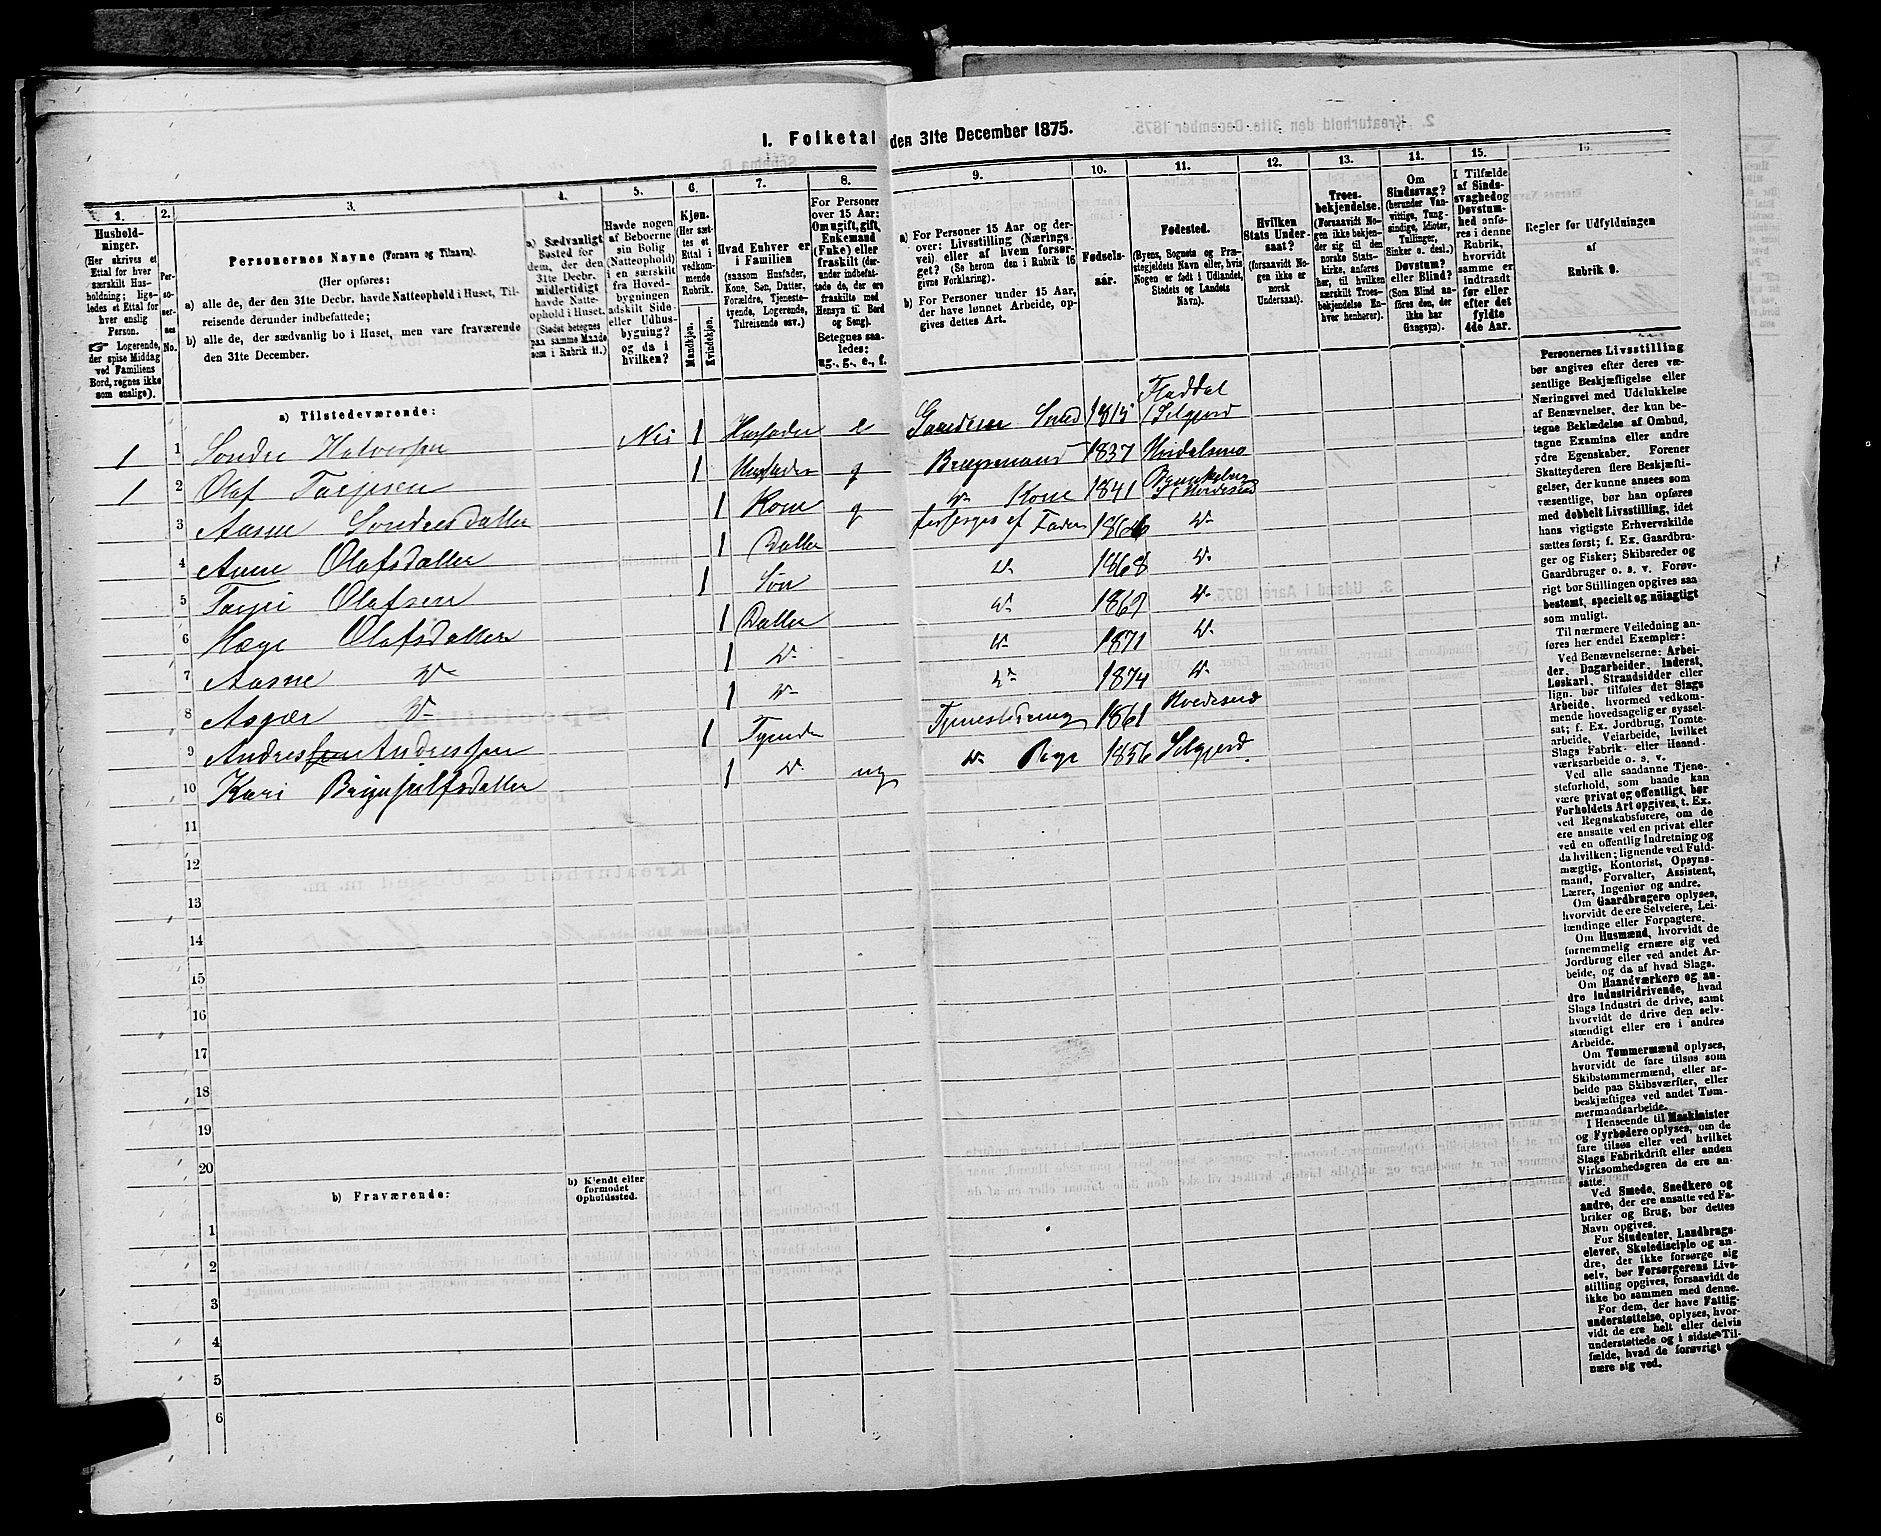 I. Folketal den 31te December 1875.
1.
Hushold-
ninger.
(Her skrives et
Ettal for hver
særskilt Hus-
holdning; lige-
ledes et Ettal for
hver enslig
Person.
☞ Logerende,
der spise Middag
ved Familiens
Bord, regnes ikke
som enslige).
2.
Per-
so-
ner-
nes
No.
3.
Personernes Navne (Fornavn og Tilnavn).
(Her opføres:
a) alle de, der den 31te Decbr. havde Natteophold i Huset, Til-
reisende derunder indbefattede;
b) alle de, der sædvanlig bo i Huset, men vare fraværende
den 31te December.
4.
a) Sædvanligt
Bosted for
dem, der den
31te Decbr.
midlertidigt
havde Natte-
ophold i Huset.
(Stedet betegnes
paa samme Maade
som i Rubrik 11.)
5.
Havde nogen
af Beboerne
sin Bolig
(Natteophold)
i en særskilt
fra Hoved-
bygningen
adskilt Side-
eller Udhus-
bygning?
og da i
hvilken?
6.
Kjøn.
(Her sæt-
tes et
Ettal i
vedkom-
mende
Rubrik.
Mandkjøn.
Kvindekjøn.
7.
Hvad Enhver er
i Familien
(saasom Husfader,
Kone, Søn, Datter,
Forældre, Tjeneste-
tyende, Logerende,
Tilreisende osv.)
8.
For Personer
over 15 Aar:
Om ugift, gift,
Enkemand
(Enke) eller
fraskilt (der-
under indbefat-
tede de, der ere
fraskilte med
Hensyn til Bord
og Seng).
Betegnes saa-
ledes:
ug., g., e., f.
9.
a) For Personer 15 Aar og der-
over: Livsstilling (Nærings-
vei) eller af hvem forsør-
get? (Se herom den i Rubrik 16
givne Forklaring).
b) For Personer under 15 Aar,
der have lønnet Arbeide, op-
gives dettes Art.
10.
Fødsels-
aar.
11.
Fødested.
(Byens, Sognets og Præ-
stegjeldets Navn eller, hvis
Nogen er født i Udlandet,
Stedets og Landets
Navn).
12.
Hvilken
Stats Under-
saat?
(forsaavidt No-
gen ikke er
norsk
Undersaat).
13.
Troes-
bekjendelse.
(Forsaavidt No-
gen ikke bekjen-
der sig til den
norske Stats-
kirke, anføres
her, til hvilken
særskilt Troes-
bekjendelse En-
hver henhører).
14.
Om
Sindssvag?
(herunder Van-
vittige, Tung-
sindige, Idioter,
Tullinger,
Sinker o. desl.)
Døvstum?
eller Blind?
(Som Blind an-
føres den, der
ikke har
Gangsyn).
15.
I Tilfælde
af Sinds-
svaghed og
Døvstum-
hed anfø-
res i denne
Rubrik,
hvorvidt
samme er
indtraadt
før eller
efter det
fyldte
4de Aar.
16.
Regler før Udfyldningen
af
Rubrik 9.
a) Tilstedeværende:
1 1 Sondre Halvorsen Nei 1 Husfader e 1815 Fladdal Selgjord
1 2 Olaf Tarjesen 1 Husfader g 1837
3 Aasne Sondresdatter 1 Kone g Do Kone 1841
4 Anne Olafsdatter 1 Datter forsørges af Fader Do
5 Tarjei Olafsen 1 Søn Do 1868 Do
6 Hæge Olafsdatter 1 Datter Do 1869 Do
7 Aasne Do 1 Do Do 1871 Do
8 Asgjær Do 1 Do Do 1874 Do
9 Andres Andressen 1 Tyende 1861
10 Kari Brynjulfsdatter 1 Do ug Do 1856 Selgjord
11
12
13
14
15
16
17
18
19
20
b) Fraværende:
b) Kjendt eller
formodet
Opholdssted.
1
2
3
4
5
6
Personernes Livsstilling
bør angives efter deres væ-
sentlige Beskjæftigelse eller
Næringsvei med Udelukkelse
af Benævnelser, der kun be-
tegne Beklædelse af Ombud,
tagne Examina eller andre
ydre Egenskaber. Forener
Skatteyderen flere Beskjæfti-
gelser, der kunne ansees som
væsentlige, bør han opføres
med dobbelt Livsstilling, idet
hans vigtigste Erhvervskilde
sættes først; f. Ex. Gaardbru-
ger og Fisker; Skibsreder og
Gaardbruger o. s. v. Forøv-
rigt bør Stillingen opgives saa
bestemt, specielt og nøiagtigt
som muligt.
Til nærmere Veiledning an-
føres her endel Exempler:
Ved Benævnelserne: Arbei-
der, Dagarbeider, Inderst,
Løskarl, Strandsidder eller
lign. bør tilføies det Slags
Arbeide, hvormed vedkom-
mende hovedsagelig er syssel-
sat; f. Ex. Jordbrug, Tomte-
arbeide, Veiarbeide, hvilket
Slags Fabrik- eller Haand-
værksarbeide o. s. v.
Ved alle saadanne Tjene-
steforhold, som baade kan
være privat og offentligt, bør
Forholdets Art opgives, t. Ex.
ved Regnskabsførere, om de
ere ansatte ved en privat eller
ved en offentlig Indretning og
da hvilken; lignende ved Fuld-
mægtig, Kontorist, Opsyns-
mand, Forvalter, Assistent,
Lærer, Ingeniør og andre.
Om Gaardbrugere oplyses,
hvorvidt de ere Selveiere, Lei-
lændinge eller Forpagtere.
Om Husmænd, hvorvidt de
fornemmelig ernære sig ved
Jordbrug eller ved andet Ar-
beide, og da af hvad Slags.
Om Haandværkere og an-
dre Industridrivende, hvad
Slags Industri de drive, samt
hvorvidt de drive den selv-
stændigt eller ere i andres
Arbeide.
Om Tømmermænd oplyses,
hvorvidt de fare tilsøs som
Skibstømmermænd, eller ar-
beide paa Skibsværfter, eller
beskjæftiges ved andet Tøm-
mermandsarbeide.
I Henseende til Maskinister
og Fyrbødere oplyses, om de
fare tilsøs eller ved hvilket
Slags Fabrikdrift eller anden
Virksomhedsgren de ere an-
satte.
Ved Smede, Snedkere og
andre, der ere ansatte ved Fa-
briker og Brug, bør dettes
Navn opgives.
For Studenter, Landbrugs-
elever, Skoledisciple og an-
dre, der ikke forsørge sig
selv, bør Forsørgerens Livs-
stilling opgives, forsaavidt de
ikke bo sammen med denne.
For dem, der have Fattig-
understøttelse, oplyses, hvor-
vidt de ere helt eller delvis
understøttede og i sidste Til-
fælde, hvad de forøvrigt er-
nære sig ved.